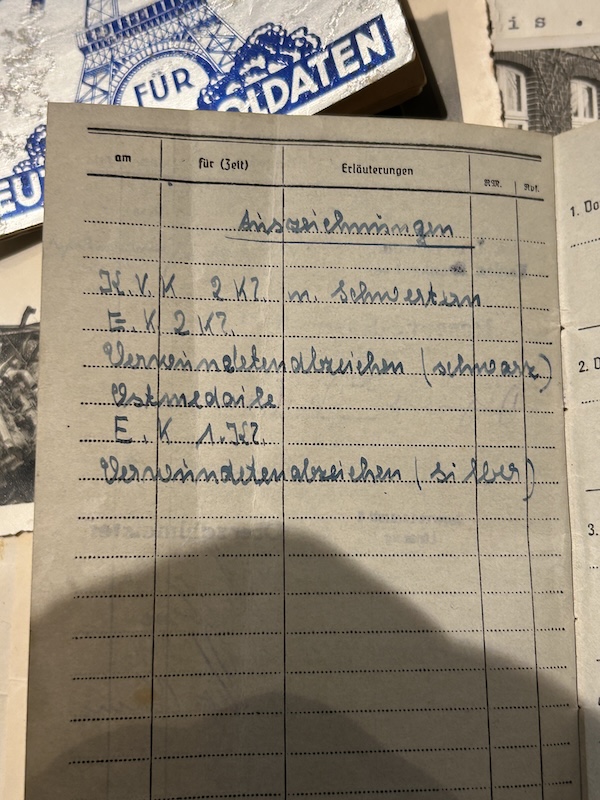 FÜR
SOLDATEN
is.
am für (Zeit) Erläuterungen RM. Rpf.
Auszeichnungen
K.V.K 2 Kl. m. Schwertern
E.K 2 Kl.
Verwundetenabzeichen (schwarz)
Ostmedaile
E.K 1. Kl.
Verwundetenabzeichen (silber)
1. Do
2. D
3.